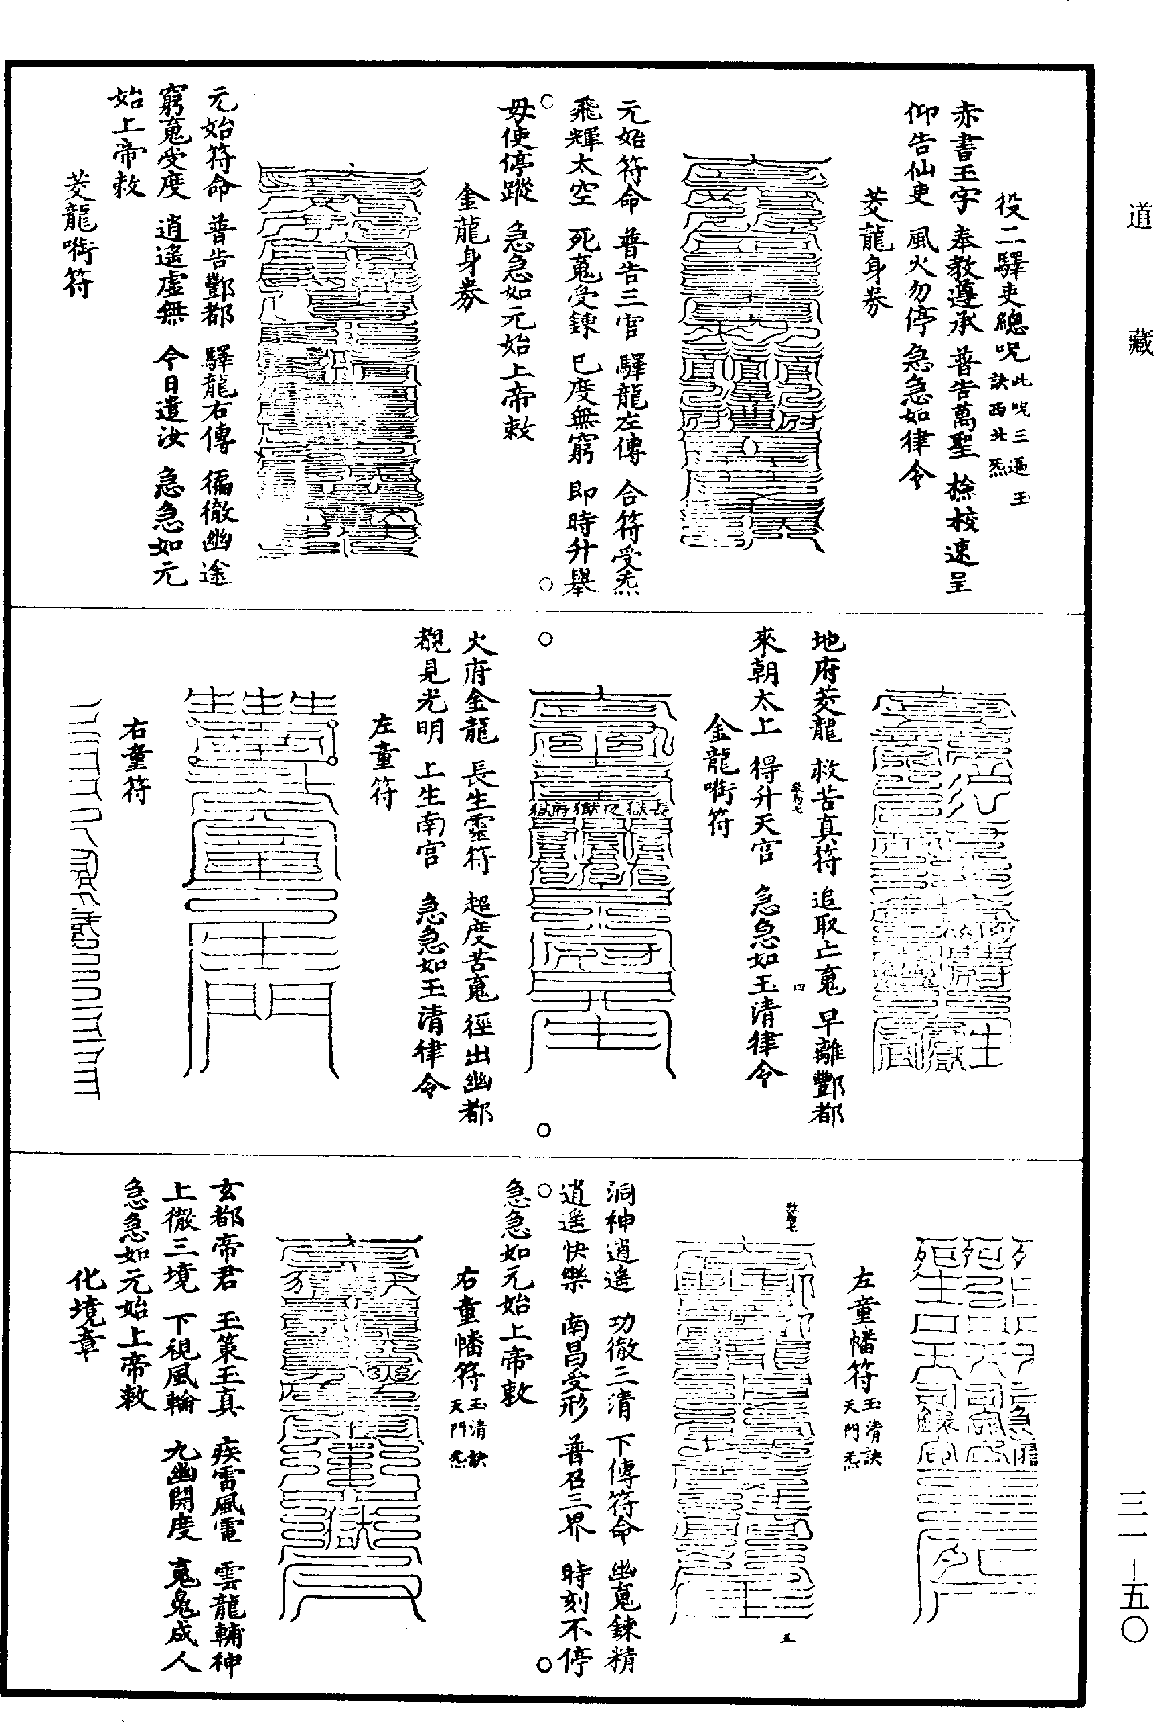 道藏
役二驛吏總呪此呪三遍玉訣西北炁
赤書玉字 奉教遵承 普告萬聖 檢校速呈
仰告仙吏 風火勿停 急急如律令
茭龍身券
元始符命 普告三官 驛龍左傳 合符受炁
飛輝太空 死䰟受鍊 已度無窮 即時升舉
毋使停蹤 急急如元始上帝敕
金龍身券
元始符命 普告酆都 驛龍右傳 徧徹幽途
窮䰟受度 逍遙虛無 今日遣汝 急急如元
始上帝敕
茭龍啣符
地府茭龍 救苦真符 追取亡䰟 早離酆都
來朝太上 得升天宮 急急如玉清律令
四
金龍啣符
火府金龍 長生靈符 超度苦䰟 徑出幽都
覩見光明 上生南宮 急急如玉清律令
左童符
右童符
左童幡符玉清訣天門炁
五
洞神逍遙 功徹三清 下傳符命 幽䰟鍊精
逍遙快樂 南昌受形 普召三界 時刻不停
急急如元始上帝敕
右童幡符玉清訣天門炁
玄都帝君 玉策玉真 疾雷風電 雲龍輔神
上徹三境 下視風輪 九幽開度 䰟鬼成人
急急如元始上帝敕
化境章
三一—五〇